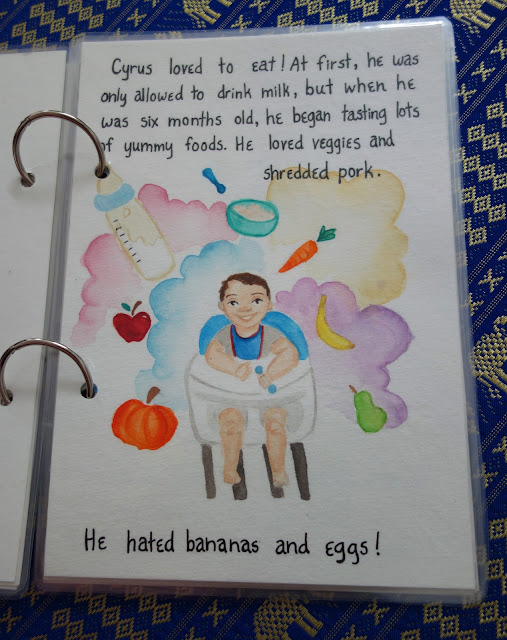 Cyrus loved to eat! At first, he was
only allowed to drink milk, but when he
was six months old, he began tasting lots
of yummy foods. He loved veggies and
shredded pork.
He hated bananas and eggs!